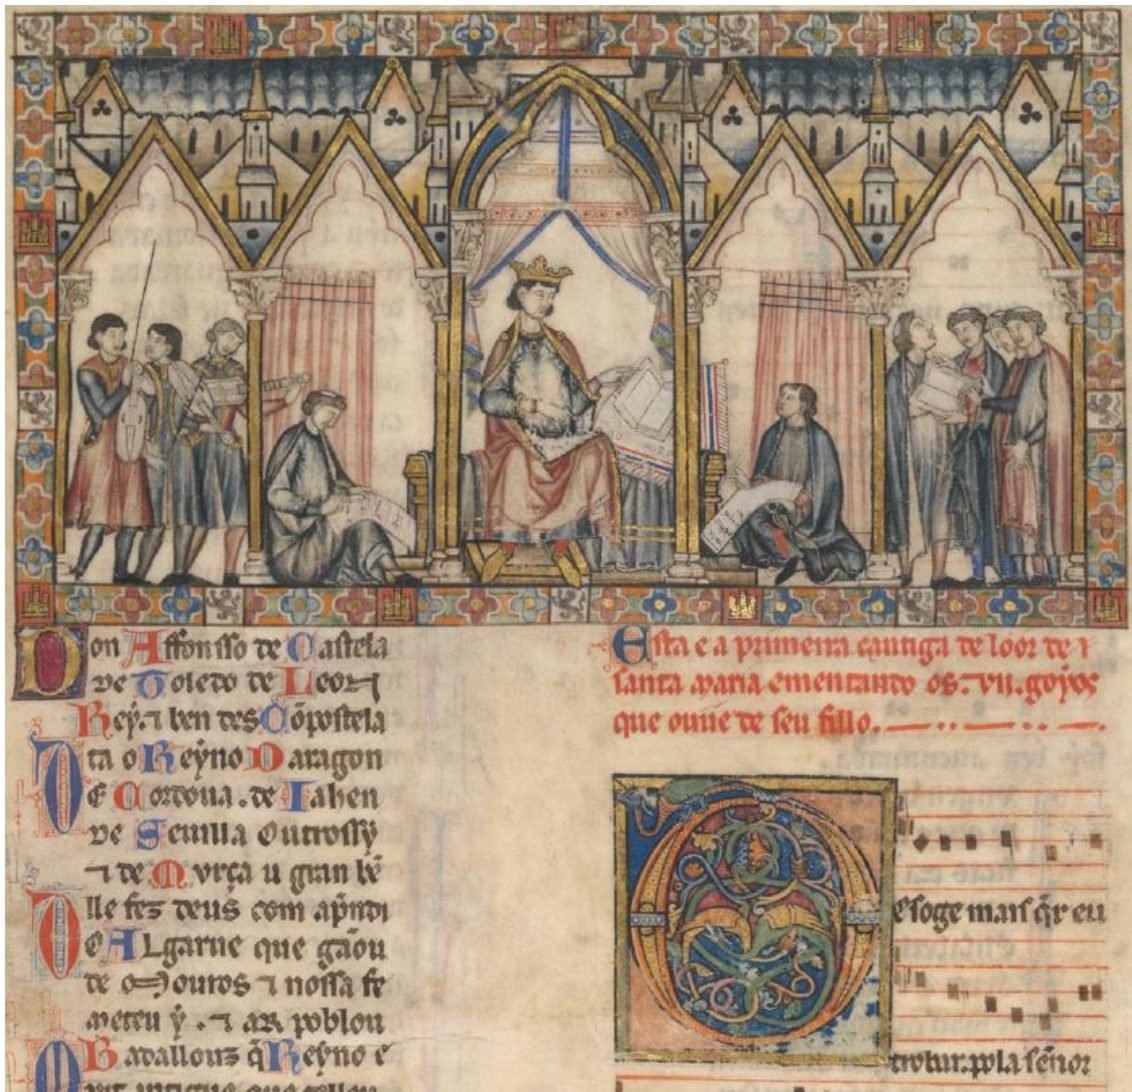 Don Affonsso de Castela
de Toledo de Leon
Rey. ⁊ ben des Cõpostela
ta o Reyno Daragon
De Cordoua . de Iahen
de Seuilla Outrossỹ
⁊ de Murça u gran bẽ
lle fez deus com ap̃ndi
Do Algarue que gãou
de Mouros ⁊ nossa fe
meteu ỹ . ⁊ ar poblou
Badallouz q̃ Reyno e
Esta e a primeira cantiga de loor de
santa maria ementando os . vii . goyos
que ouue de seu fillo .
Desoge mais q̃r eu
trobar. pola sẽnor